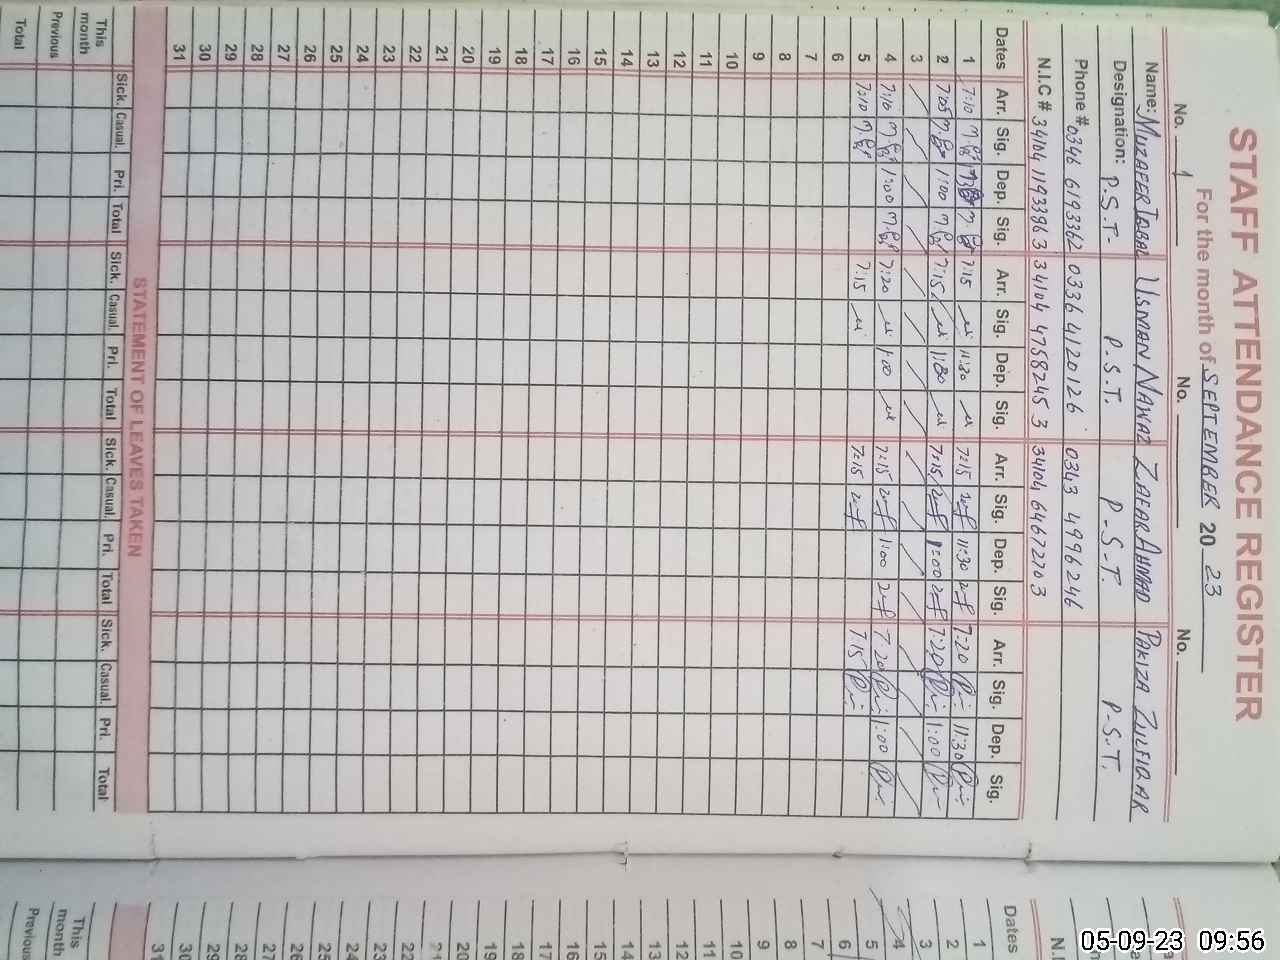 STAFF ATTENDANCE REGISTER
For the month of SEPTEMBER 2023
No. 1 No. No.
Name: MUZAFER IQBAL USMAN NAWAZ ZAFAR AHMAD PAKIZA ZULFIQAR
Designation: P.S.T- P.S.T. P.S.T. P.S.T.
Phone # 0346 6193362 0336 4120126 0343 4996246
N.I.C # 34104 1193396 3 34104 4758245 3 34104 6467270 3
Dates Arr. Sig. Dep. Sig. Arr. Sig. Dep. Sig. Arr. Sig. Dep. Sig. Arr. Sig. Dep. Sig.
1 7:10 7:15 11:30 7:15 11:30 7:20 11:30
2 7:05 1:00 7:15 11:30 7:15 1:00 7:20 1:00
3
4 7:10 1:00 7:20 1:00 7:15 1:00 7:20 1:00
5 7:10 7:15 7:15 7:15
6
7
8
9
10
11
12
13
14
15
16
17
18
19
20
21
22
23
24
25
26
27
28
29
30
31
STATEMENT OF LEAVES TAKEN
Sick. Casual. Pri. Total Sick. Casual. Pri. Total Sick. Casual. Pri. Total Sick. Casual. Pri. Total
This month
Previous
Total
Dates
1
2
3
4
5
6
7
8
9
10
11
12
13
14
15
16
17
18
19
20
21
22
23
24
25
26
27
28
29
30
31
This month
Previous
05-09-23 09:56